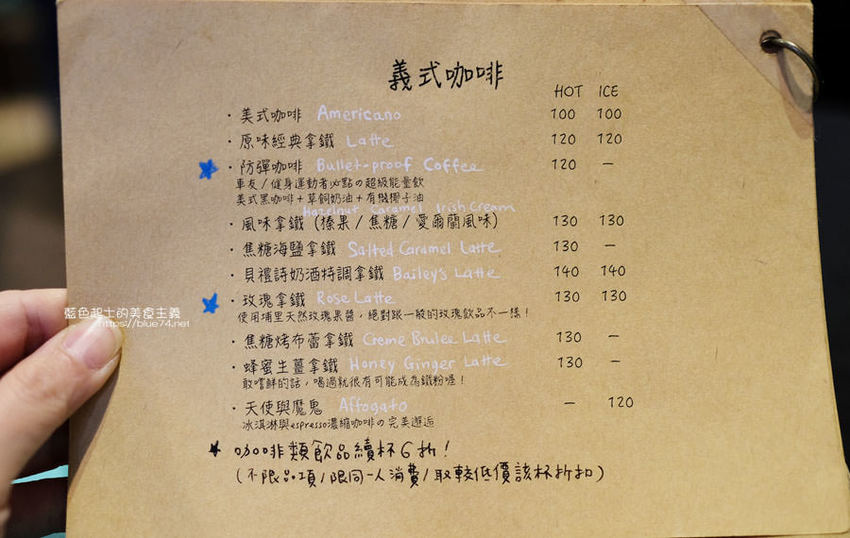 義式咖啡
HOT ICE
・美式咖啡 Americano 100 100
・原味經典拿鐵 Latte 120 120
★・防彈咖啡 Bullet-proof Coffee 120 —
車友/健身運動者必點の超級能量飲
美式黑咖啡+草飼奶油+有機椰子油
Hazelnut Caramel Irish Cream
・風味拿鐵(榛果/焦糖/愛爾蘭風味) 130 130
・焦糖海鹽拿鐵 Salted Caramel Latte 130 —
・貝禮詩奶酒特調拿鐵 Bailey's Latte 140 140
★・玫瑰拿鐵 Rose Latte 130 130
使用埔里天然玫瑰果醬,絕對跟一般的玫瑰飲品不一樣!
・焦糖烤布蕾拿鐵 Creme Brulee Latte 130 —
・蜂蜜生薑拿鐵 Honey Ginger Latte 130 —
敢嚐鮮的話,喝過就很有可能成為鐵粉喔!
・天使與魔鬼 Affogato — 120
冰淇淋與espresso濃縮咖啡の完美邂逅
★ 咖啡類飲品續杯6折!
(不限品項/限同一人消費/取較低價該杯折扣)
藍色起士的美食主義
https://blue74.net